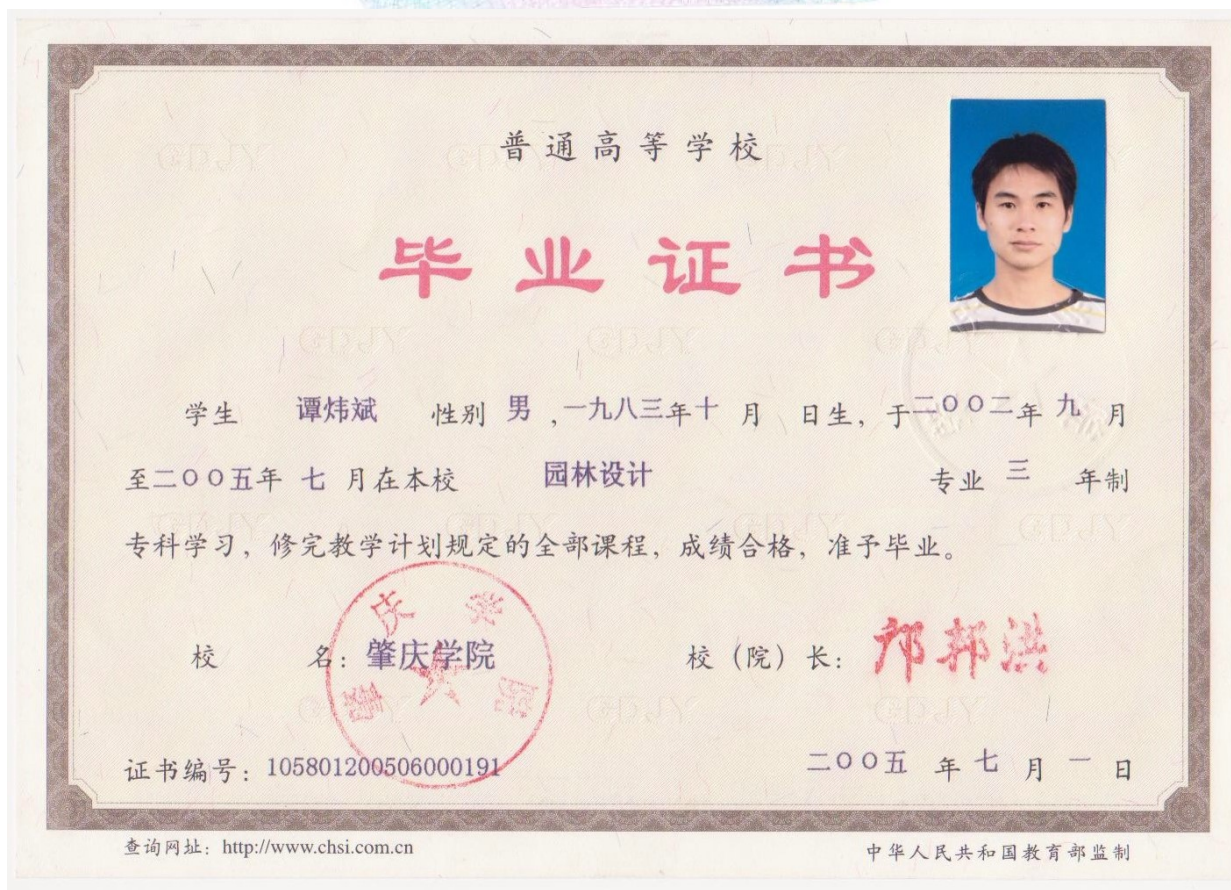 普通高等学校
毕业证书
学生 谭炜斌 性别 男，一九八三年十 月 日生，于二〇〇二年 九 月
至二〇〇五年 七 月在本校 园林设计 专业 三 年制
专科学习，修完教学计划规定的全部课程，成绩合格，准予毕业。
校 名：肇庆学院 校（院）长：邝邦洪
肇庆学院
证书编号：105801200506000191 二〇〇五 年 七 月 一 日
查询网址：http://www.chsi.com.cn 中华人民共和国教育部监制
GDJY